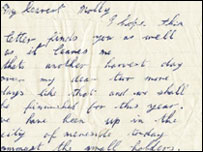 My Dearest Molly
I hope this
letter finds you as well
as it leaves me
thats another harvest day
over my dear two more
days like that and we shall
be finished for this year.
we have been up in the
city of
amongst the small holders.